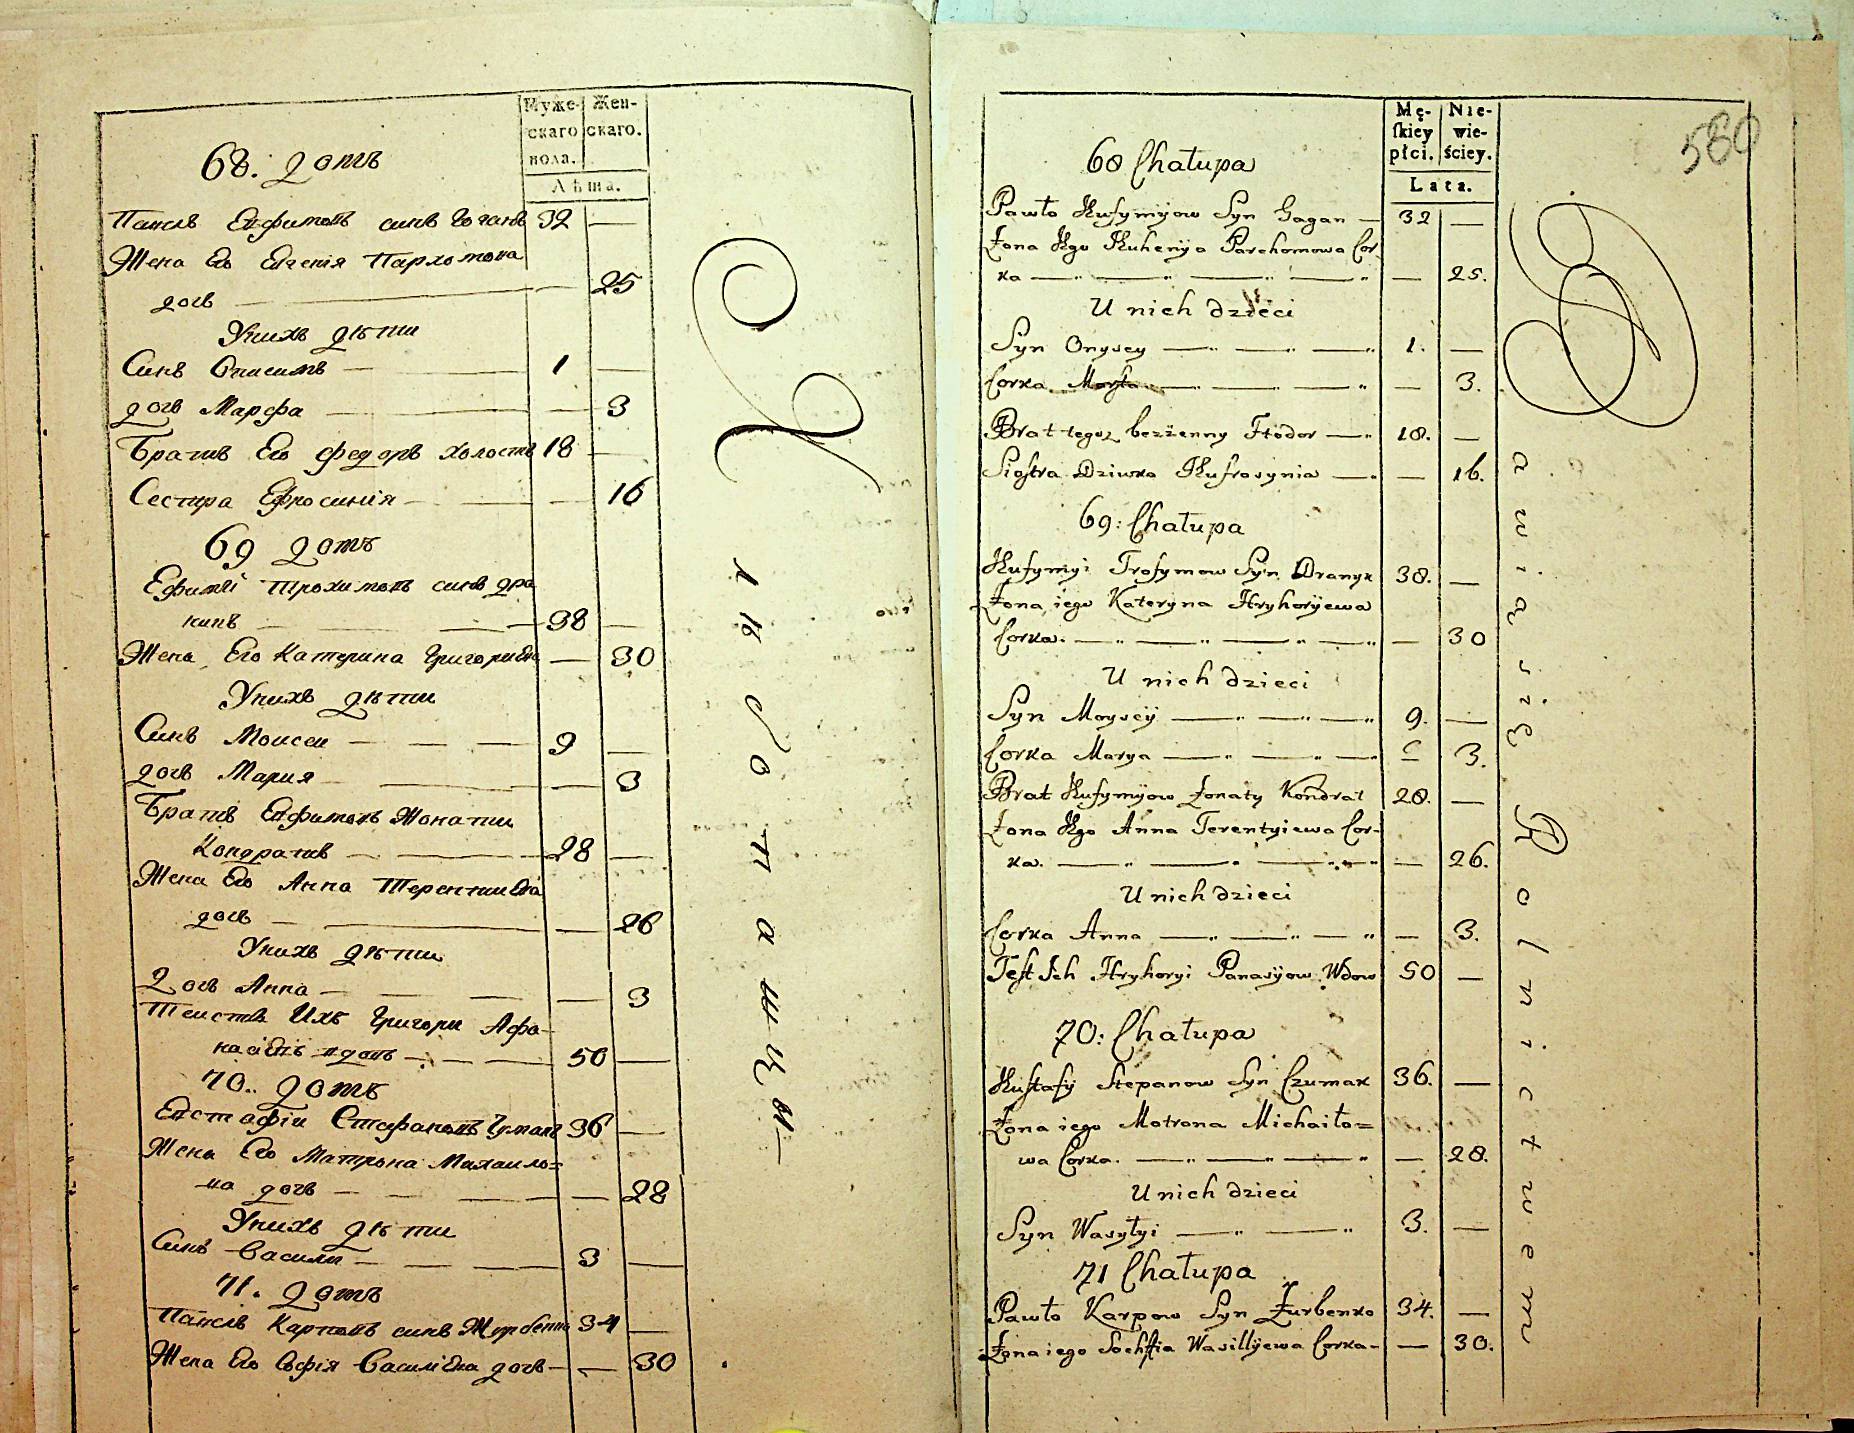 Муже-
скаго
пола.
Жен-
скаго.
Лѣта.
68. домъ
Павелъ Евфимовъ синъ Гоганъ 32 —
Жена Его Евгенія Пархомова
дочь — — 25
Унихъ дѣти
Синъ Онисимъ — 1 —
дочь Марфа — — 3
Братъ Его федоръ холостъ 18 —
Сестра Ефросинія — — 16
69 домъ
Ефимій Трохимовъ синъ дра
никъ — 38 —
Жена Его Катерина Григориева — 30
Унихъ дѣти
Синъ Моисеи — 9 —
дочь Мария — — 3
Братъ Евфимовъ Жонати
Кондратъ — 28 —
Жена Его Анна Терентиева
дочь — — 26
Унихъ дѣти
Дочь Анна — — 3
Теиста Ихъ Григори Афо-
насіевъ вдовъ — 50 —
70. домъ
Евстафіи Стефановъ Чумакъ 36 —
Жена Его Матрона Михаило=
ва дочь — — 28
Унихъ дѣти
Синъ Василь — 3 —
71. домъ
Павелъ Карповъ синъ Журбенко 34 —
Жена Его Софія Василіева дочь — — 30
Хлѣбопашцы —
580
Mę-
skiey
płci.
Nie-
wie-
ściey.
Lata.
68 Chałupa
Pawło Kufymijow Syn Gagan — 32 —
Żona Jego Kuhenija Parchomowa Cor-
ka — — 25.
U nich dzieci
Syn Onysey — 1. —
Corka Marfa — — 3.
Brat tegoż bezżenny Fiodor — 18. —
Siostra Dziwka Kufrosynia — — 16.
69: Chałupa
Kufymyi Trofymow Syn Dranyk 38. —
Żona iego Kateryna Hryhoryiewa
Corka. — — 30
U nich dzieci
Syn Moysey — 9. —
Corka Marya — — 3.
Brat Kufymijow Żonaty Kondrat 28. —
Żona Jego Anna Terentyiewa Cor-
ka. — — 26.
U nich dzieci
Corka Anna — — 3.
Test Ich Hryhoryi Panasijow Wdow 50 —
70: Chałupa
Kustafij Stepanow Syn Czumak 36. —
Żona iego Motrona Michaiło=
wa Corka. — — 28.
U nich dzieci
Syn Wasylyi — 3. —
71 Chałupa
Pawło Karpow Syn Żurbenko 34. —
Żona iego Sochfia Wasillijewa Corka — — 30.
Bawią się Rolnictwem